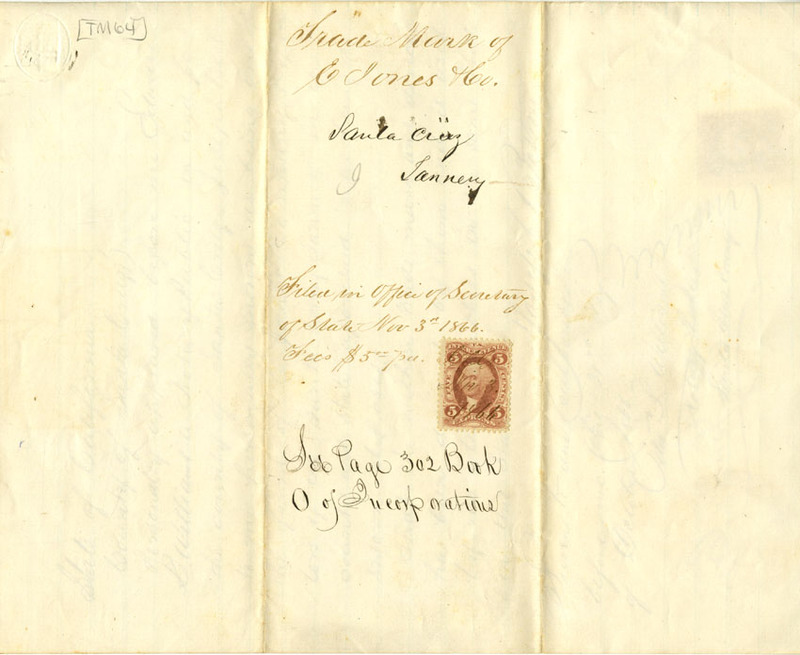 [TM64]
Trade Mark of
E Jones & Co.
Santa Cruz
Tannery
Filed in Office of Secretary
of State Nov 3rd 1866.
Fees $5 00 pd.
5 5
5 5
1866
See Page 302 Book
O of Incorporations